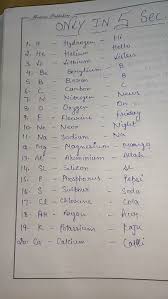 ONLY IN 5 Sec
1. H - Hydrogen Hi
2. He - Helium Hello
3. Li - Lithium Listen
4. Be - Beryllium
5. B - Boron
6. C - Carbon
7. N - Nitrogen News
8. O - Oxygen On
9. F - Fluorine Friday
10. Ne - Neon Night
11. Na - Sodium Na
12. Mg - Magnesium
13. Al - Aluminium
14. Si - Silicon
15. P - Phosphorus Pepsi
16. S - Sulphur Soda
17. Cl - Chlorine Cola
18. Ar - Argon
19. K - Potassium
20. Ca - Calcium